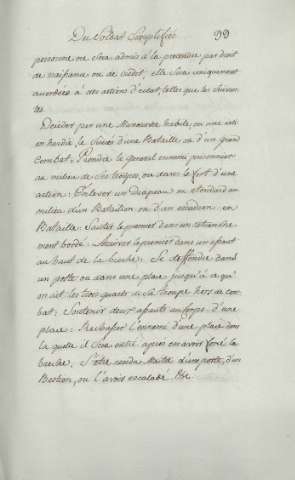 Du Soldat Simplifiée 99
personne ne sera admis à la prétendre par droit
de naissance ou de crédit, elle sera uniquement
accordée à des actions d'éclat, telles que les suivan-
tes
Décider par une manœuvre habile, ou une acti-
on hardie, le succès d'une Bataille ou d'un grand
Combat: Prendre le general ennemi prisonnier
au milieu de ses troupes, ou dans le fort d'une
action: Enlever un Drapeau ou étendard au
milieu d'un Bataillon ou d'un escadron en
Bataille. Sauter le premier dans un retranche
ment bordé. Arriver le premier dans un assaut
au haut de la breche. Se deffendre dans
un poste ou dans une place jusqu'à ce qu'
on ait les trois quarts de sa troupe hors de com-
bat: Soutenir deux assauts au corps d'une
place: Rechasser l'ennemi d'une place dans
la quelle il sera entré après en avoir forcé la
breche: S'être rendu Maitre d'un poste, d'un
Bastion, ou l'avoir escaladé &c.